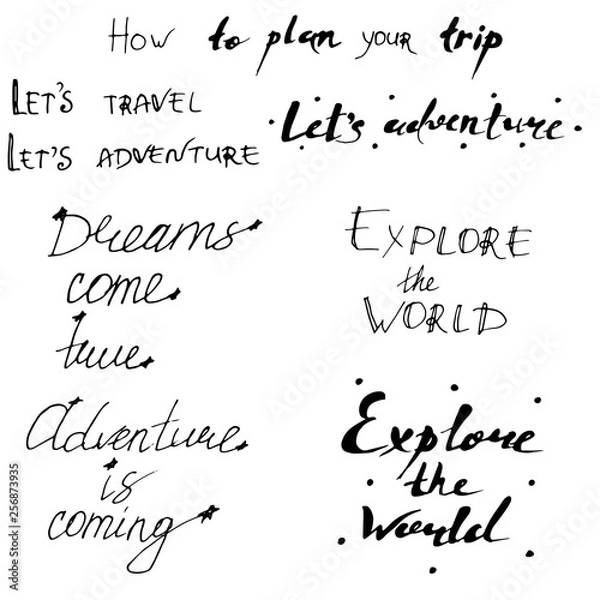 How to plan your trip
LET'S TRAVEL
LET'S ADVENTURE
Let's adventure
Dreams
come
true
EXPLORE
the
WORLD
Adventure
is
coming
Explore
the
World
Adobe Stock | #256873935